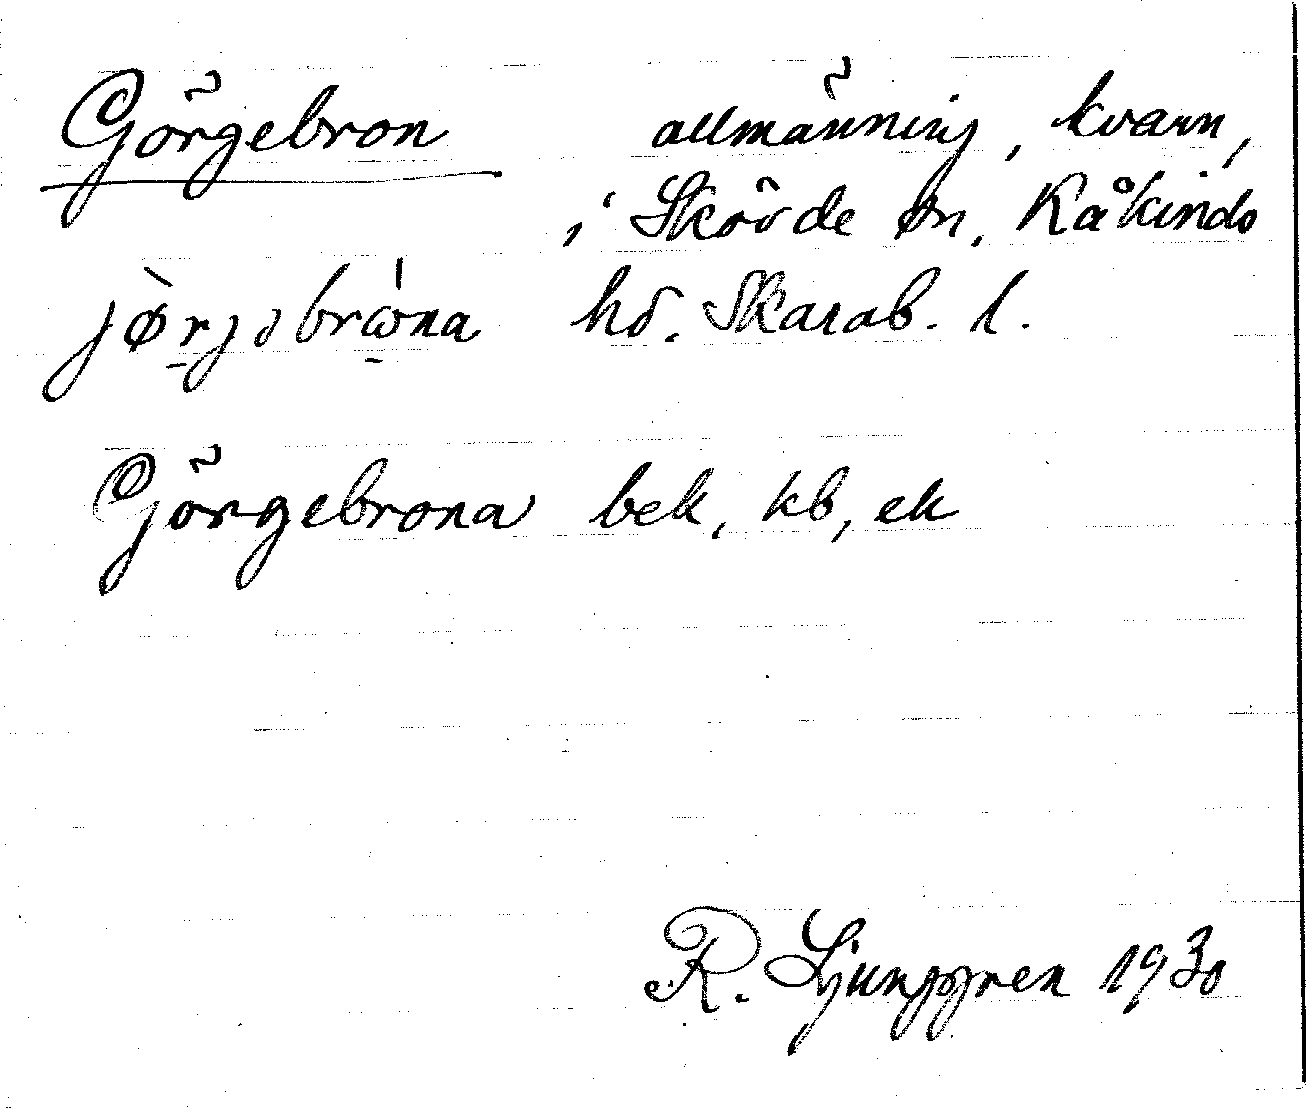 Görgebron allmänning, kvarn,
i Skövde sn, Kåkinds
jø̀rjəbrωna hd. Skarab. l.
Görgebrona bek, kb, ek
R. Ljunggren 1930